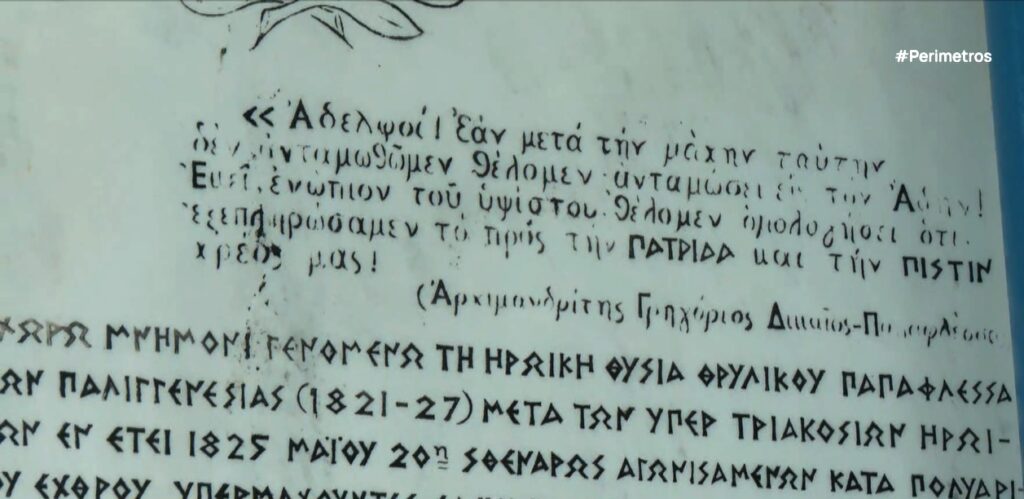 #Perimetros
<< Ἀδελφοί! Ἐάν μετά τήν μάχην ταύτην
δέν ἀνταμωθῶμεν θέλομεν ἀνταμώσει εἰς τόν Ἅδην!
Ἐκεῖ, ἐνώπιον τοῦ ὑψίστου θέλομεν ὁμολογήσει ὅτι
ἐξεπληρώσαμεν τό πρός τήν ΠΑΤΡΙΔΑ και τήν ΠΙΣΤΙΝ
χρέος μας!
(Ἀρχιμανδρίτης Γρηγόριος Δικαῖος-Παπαφλέσσας
ΧΩΡΩ ΜΝΗΜΟΝΙ ΓΕΝΟΜΕΝΩ ΤΗ ΗΡΩΙΚΗ ΘΥΣΙΑ ΘΡΥΛΙΚΟΥ ΠΑΠΑΦΛΕΣΣΑ
ΩΝ ΠΑΛΙΓΓΕΝΕΣΙΑΣ (1821-27) ΜΕΤΑ ΤΩΝ ΥΠΕΡ ΤΡΙΑΚΟΣΙΩΝ ΗΡΩΙ-
ΩΝ ΕΝ ΕΤΕΙ 1825 ΜΑΪΟΥ 20ῃ ΣΘΕΝΑΡΩΣ ΑΓΩΝΙΣΑΜΕΝΩΝ ΚΑΤΑ ΠΟΛΥΑΡΙ-
ΟΥ ΕΧΘΡΟΥ ΥΠΕΡΜΑΧΟΥΝΤΕΣ